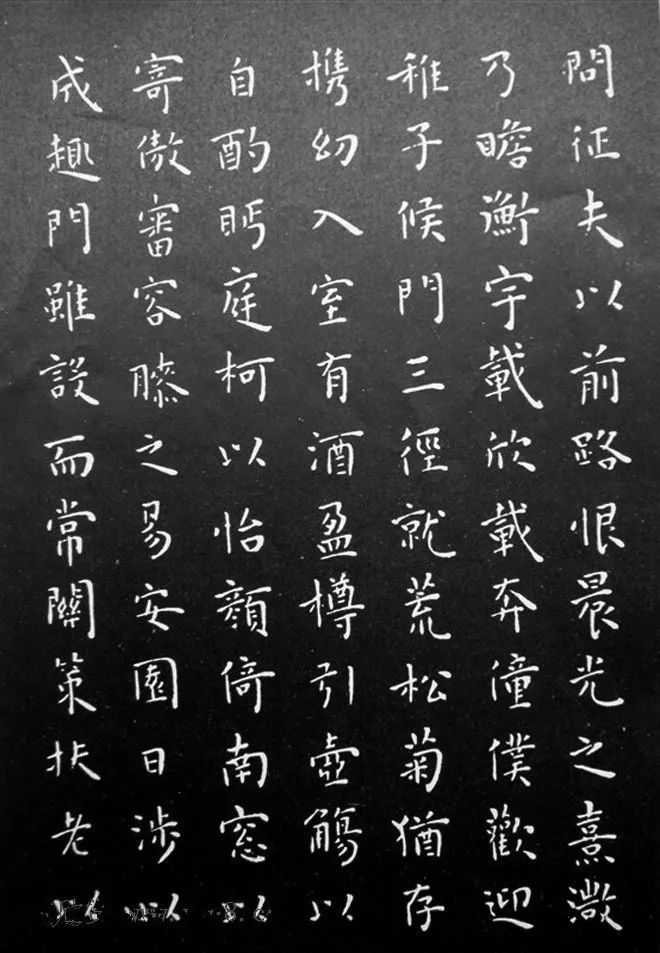 問征夫以前路恨晨光之熹溦
乃瞻衡宇載欣載奔僮僕歡迎
稚子候門三徑就荒松菊猶存
携幼入室有酒盈樽引壺觴以
自酌眄庭柯以怡顔倚南窓以
寄傲審容膝之易安園日涉以
成趣門雖設而常關策扶老以